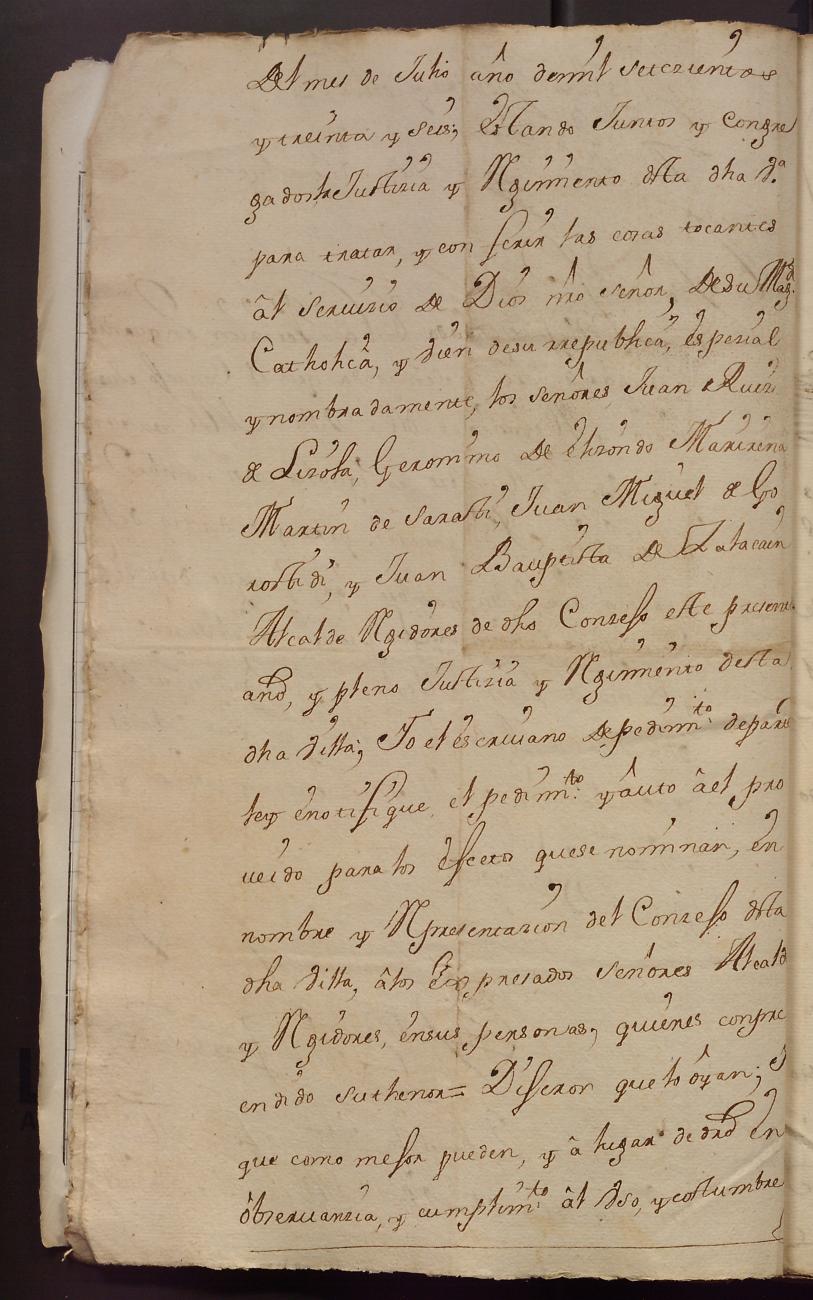 Del mes de Julio año demil setezientos
y treinta y seis; Estando Juntos y Congre
gados la Justizia y Regimiento desta dha Va
para tratar, y con ferir las cosas tocantes
ál seruizio de Dios nro señor, de su Magd.
Catholica, y vien de su rrepublica, espezial
y nombradamente, los señores Juan Ruiz
de Lizosa, Geronimo de Elizondo Marirena
Martin de Sarasti, Juan Miguel de Go
rostidi, y Juan Bauptista de Zatarain
Alcalde Regidores de dho Conzejo este present
año, y pleno Justizia y Regimiento desta
dha Villa; Yo el escriuano de pedimto. de par
te, enotifique el pedimto. y auto á el pro
ueido para los efectos que se nominan, en
nombre y Representazion del Conzejo desta
dha Villa, álos Expresados señores Alcalde
y Regidores, en sus personas, quienes conpre
endido su thenor= Dijeron que lo oyan; y
que como mejor pueden, y á lugar de dro en
óbseruanzia, y cumplimto ál Vso, y costumbre